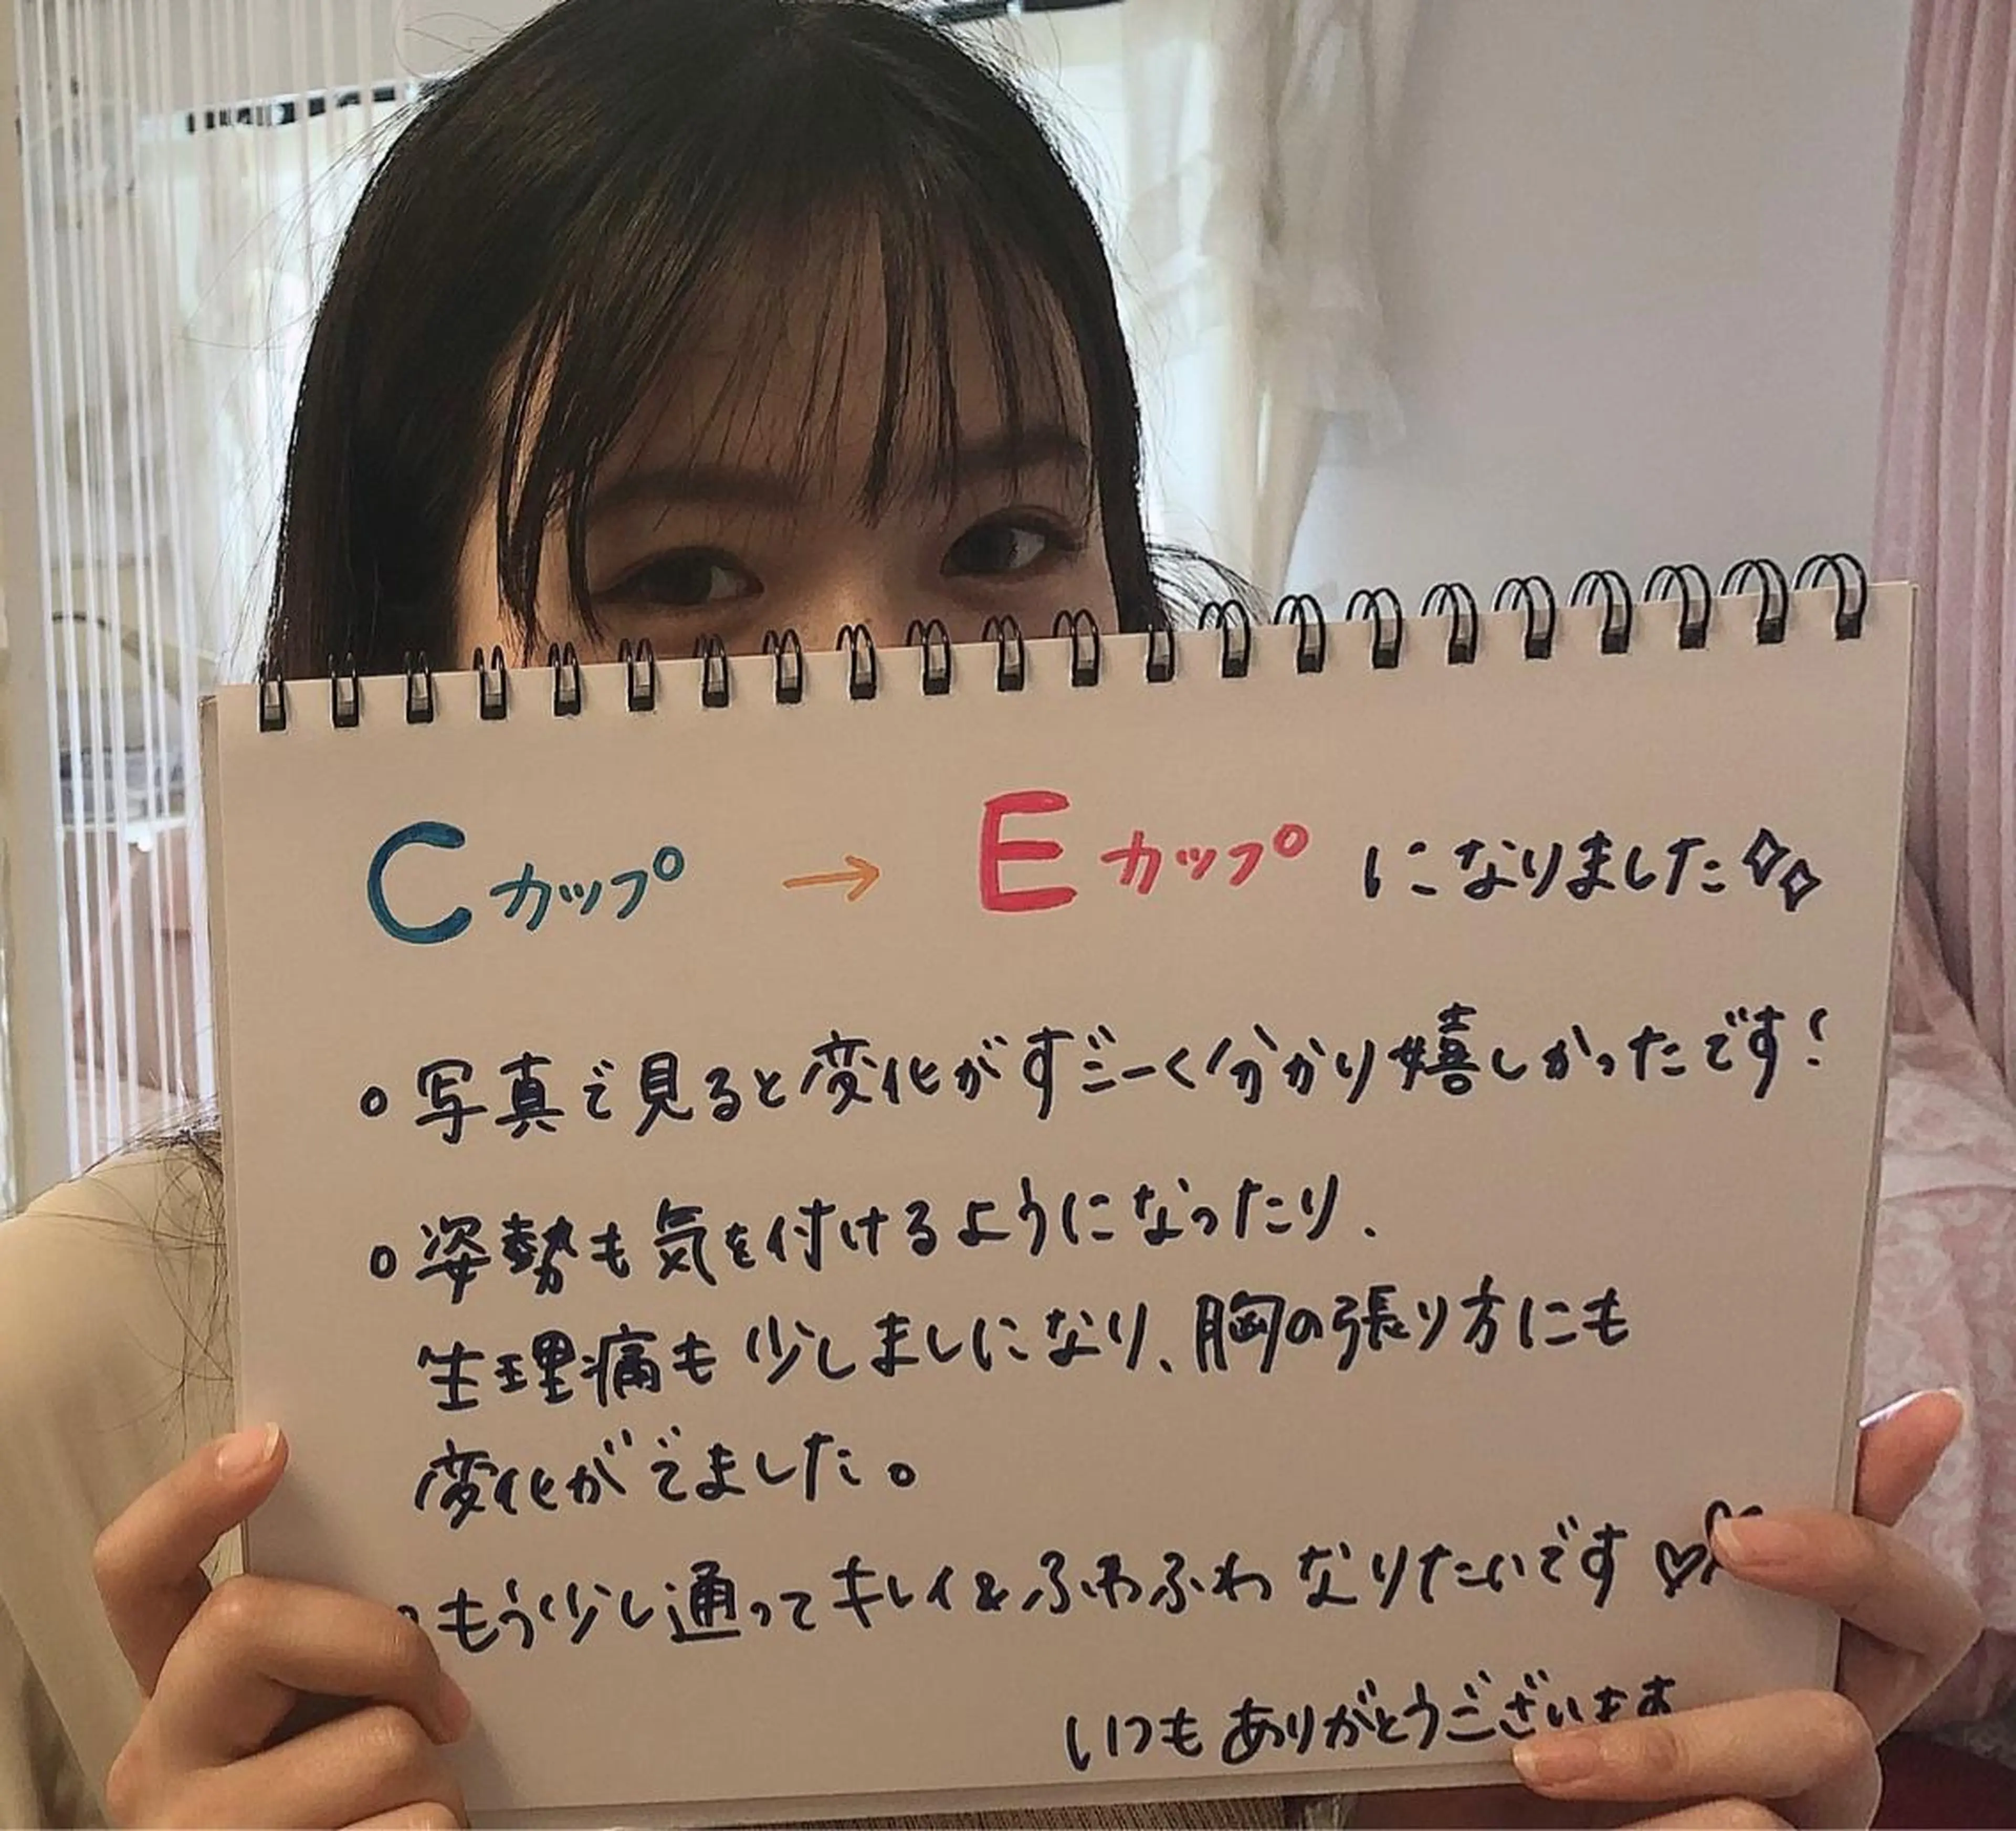 Cカップ → Eカップ になりました
○写真で見ると変化がすごーく分かり嬉しかったです!
○姿勢も気を付けるようになったり、
生理痛も少しましになり、胸の張り方にも
変化がでました。
○もう少し通ってキレイ&ふわふわなりたいです♡♡
いつもありがとうございます